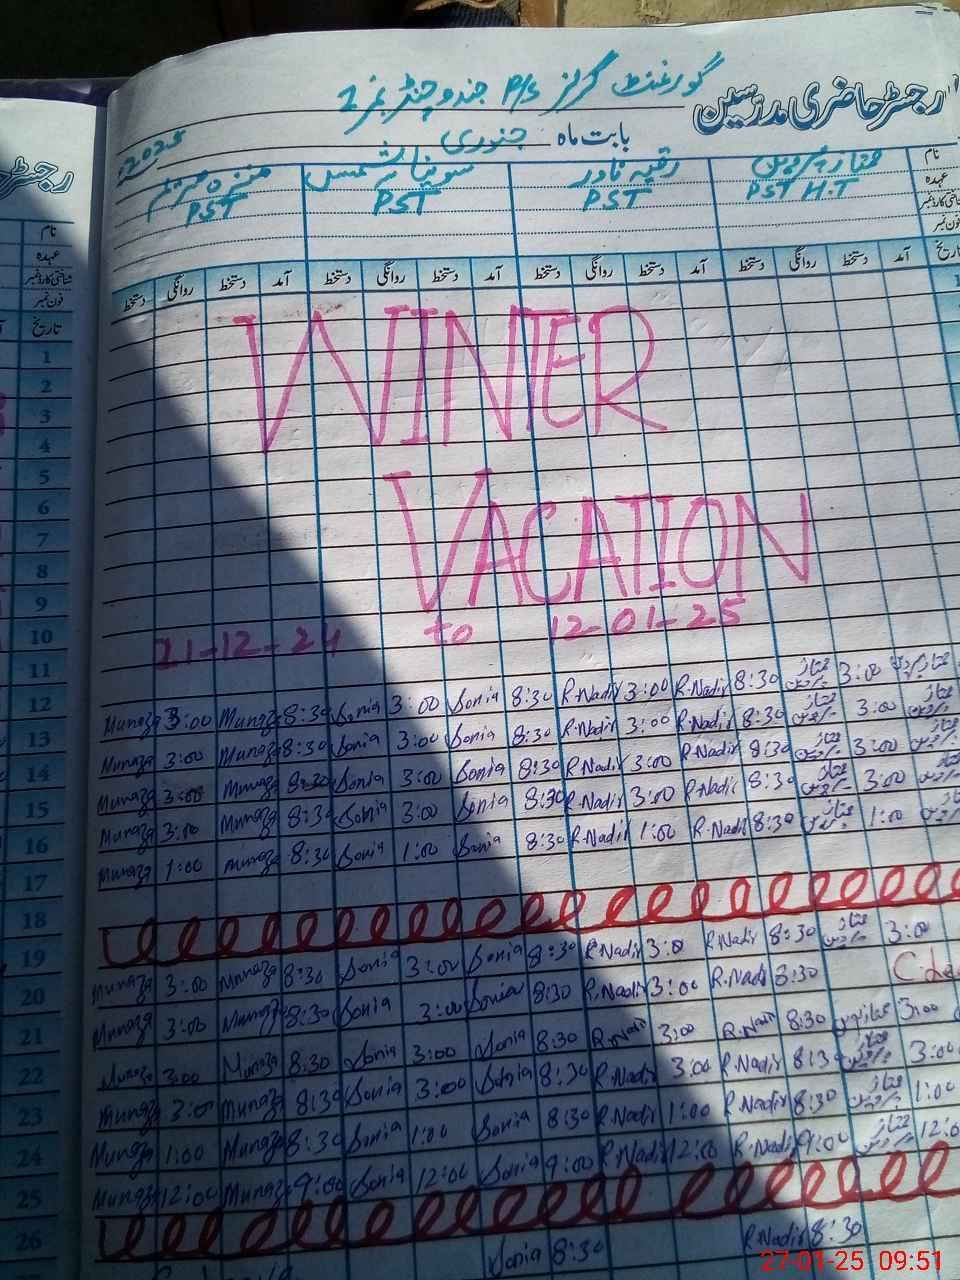 رجسٹر حاضری مدرسین
گورنمنٹ گرلز P/S جندو چنڈ نمبر 2
بابت ماہ جنوری 2025
نام
عہدہ
شناختی کارڈ نمبر
فون نمبر
ممتاز پروین رقیہ نادر سونیا شمس منزہ مریم
PST H.T PST PST PST
تاریخ آمد دستخط روانگی دستخط آمد دستخط روانگی دستخط آمد دستخط روانگی دستخط آمد دستخط روانگی دستخط
WINTER
VACATION
21-12-24 to 12-01-25
Munaza 3:00 Munaza 8:30 Sonia 3:00 Sonia 8:30 R.Nadir 3:00 R.Nadir 8:30 ممتاز پروین 3:00 ممتاز پروین
Munaza 3:00 Munaza 8:30 Sonia 3:00 Sonia 8:30 R.Nadir 3:00 R.Nadir 8:30 ممتاز پروین 3:00 ممتاز پروین
Munaza 3:00 Munaza 8:30 Sonia 3:00 Sonia 8:30 R.Nadir 3:00 R.Nadir 8:30 ممتاز پروین 3:00 ممتاز پروین
Munaza 3:00 Munaza 8:30 Sonia 3:00 Sonia 8:30 R.Nadir 3:00 R.Nadir 8:30 ممتاز پروین 3:00
Munaza 1:00 Munaza 8:30 Sonia 1:00 Sonia 8:30 R.Nadir 1:00 R.Nadir 8:30 ممتاز پروین 1:00
Munaza 3:00 Munaza 8:30 Sonia 3:00 Sonia 8:30 R.Nadir 3:00 R.Nadir 8:30 ممتاز پروین 3:00
Munaza 3:00 Munaza 8:30 Sonia 3:00 Sonia 8:30 R.Nadir 3:00 R.Nadir 8:30
Munaza 3:00 Munaza 8:30 Sonia 3:00 Sonia 8:30 R.Nadir 3:00 R.Nadir 8:30 ممتاز پروین 3:00
Munaza 3:00 Munaza 8:30 Sonia 3:00 Sonia 8:30 R.Nadir 3:00 R.Nadir 8:30 ممتاز پروین 3:00
Munaza 1:00 Munaza 8:30 Sonia 1:00 Sonia 8:30 R.Nadir 1:00 R.Nadir 8:30 ممتاز پروین 1:00
Munaza 12:00 Munaza 9:00 Sonia 12:00 Sonia 9:00 R.Nadir 12:00 R.Nadir 9:00 ممتاز پروین 12:00
Sonia 8:30 R.Nadir 8:30
نام
عہدہ
شناختی کارڈ نمبر
فون نمبر
تاریخ
1
2
3
4
5
6
7
8
9
10
11
12
13
14
15
16
17
18
19
20
21
22
23
24
25
26
27-01-25 09:51